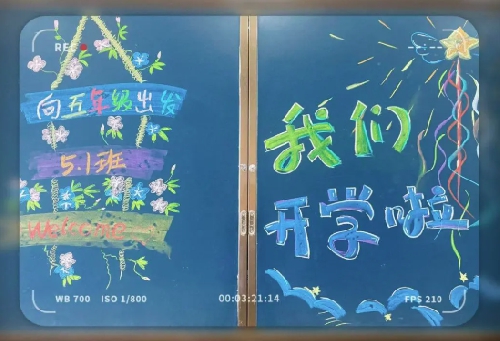 REC
向五年级出发
5.1班
Welcome
我们
开学啦
WB 700 ISO 1/800
00:03:21:14
FPS 210